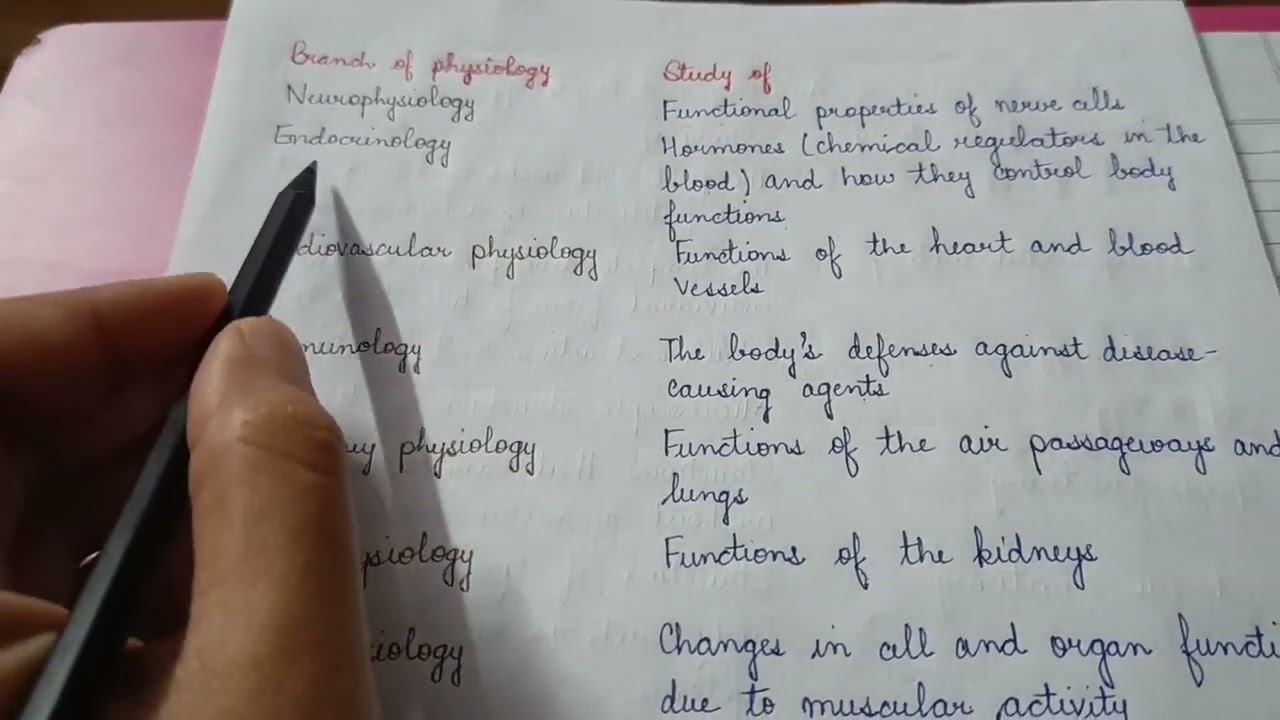 Branch of physiology Study of
Neurophysiology Functional properties of nerve cells
Endocrinology Hormones (chemical regulators in the
blood) and how they control body
functions
diovascular physiology Functions of the heart and blood
vessels
munology The body's defenses against disease-
causing agents
physiology Functions of the air passageways and
lungs
siology Functions of the kidneys
iology Changes in cell and organ functi
due to muscular activity